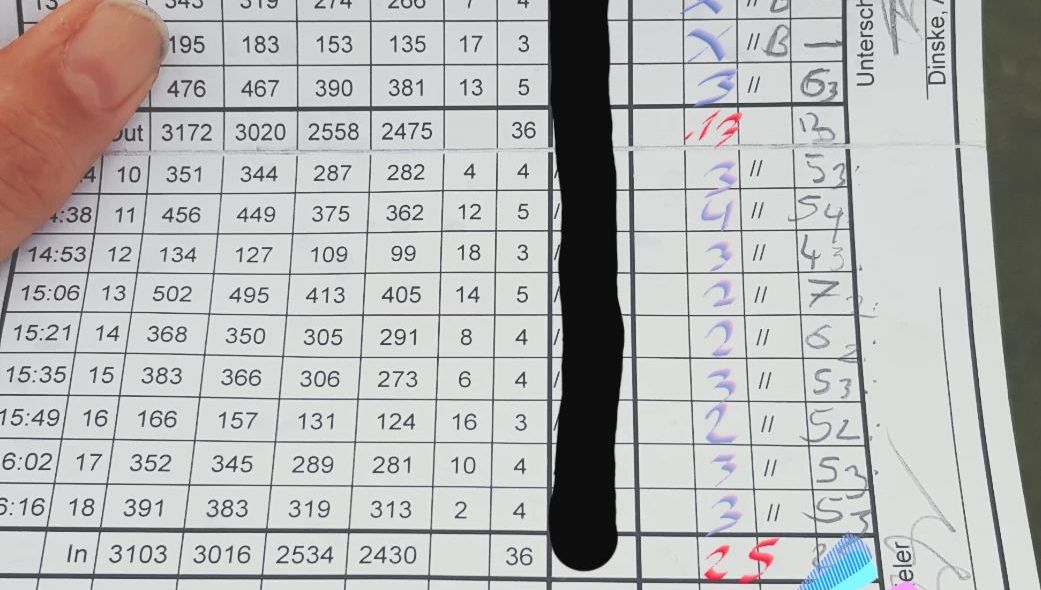 13 343 319 274 266 7 4 X // B
195 183 153 135 17 3 X // B —
476 467 390 381 13 5 3 // 63
Out 3172 3020 2558 2475 36 13 13
4 10 351 344 287 282 4 4 / 3 // 53
4:38 11 456 449 375 362 12 5 / 4 // 54
14:53 12 134 127 109 99 18 3 / 3 // 43
15:06 13 502 495 413 405 14 5 / 2 // 7 2
15:21 14 368 350 305 291 8 4 / 2 // 6 2
15:35 15 383 366 306 273 6 4 / 3 // 53
15:49 16 166 157 131 124 16 3 / 2 // 52
6:02 17 352 345 289 281 10 4 3 // 53
6:16 18 391 383 319 313 2 4 3 // 53
In 3103 3016 2534 2430 36 25
Untersch
Dinske, 
eler